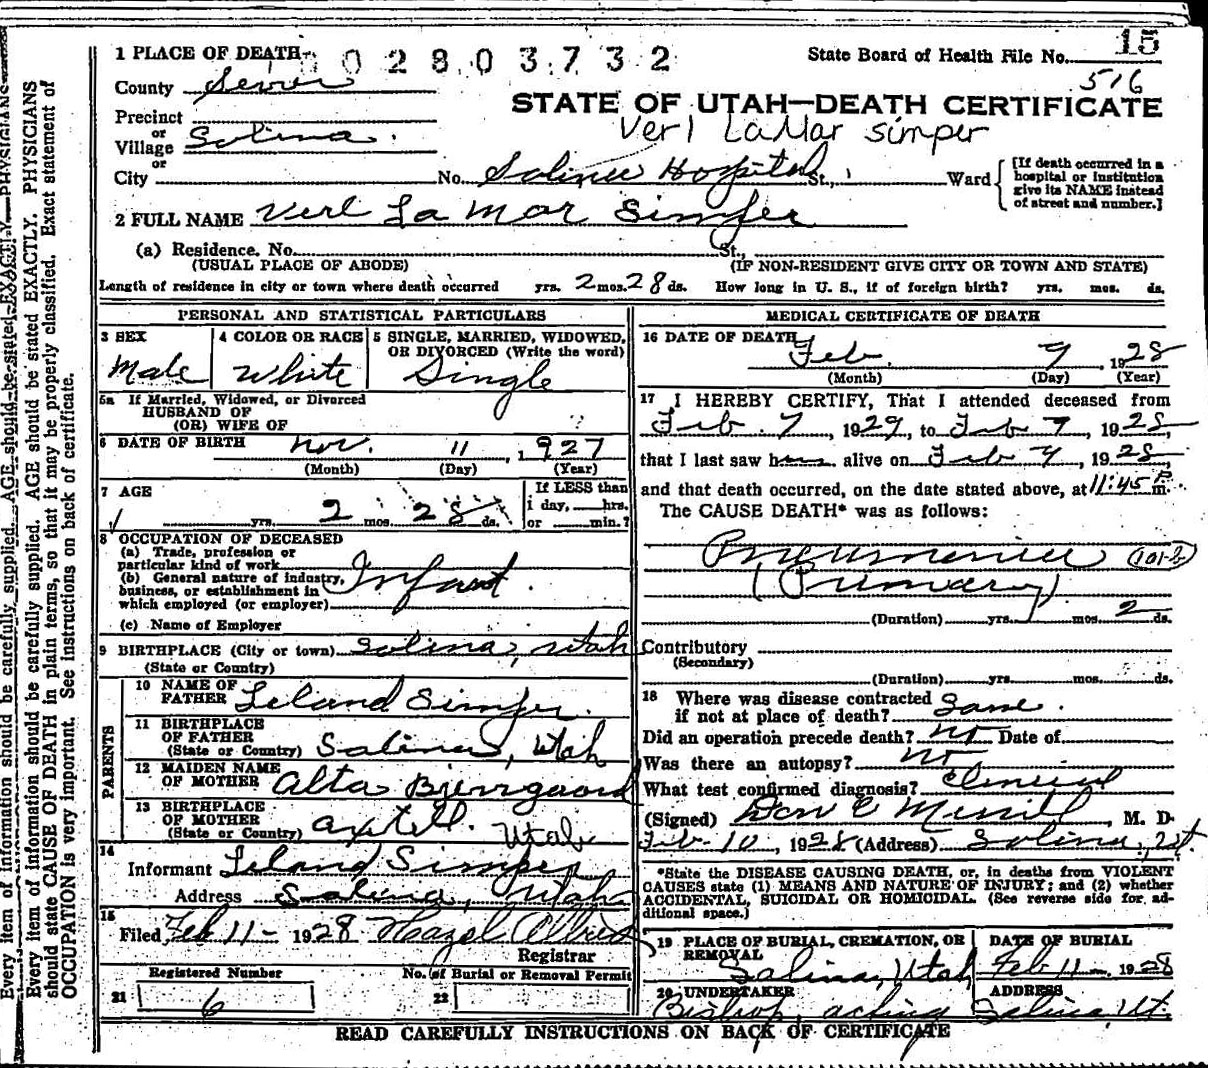 1 PLACE OF DEATH
0 0 2 8 0 3 7 3 2
State Board of Health File No. 15
516
County Sevier
STATE OF UTAH—DEATH CERTIFICATE
Verl LaMar Simper
Precinct
or
Village Salina.
or
City No. Salina Hospital St., Ward
[If death occurred in a hospital or institution give its NAME instead of street and number.]
2 FULL NAME Verl La Mar Simper
(a) Residence. No. St.,
(USUAL PLACE OF ABODE) (IF NON-RESIDENT GIVE CITY OR TOWN AND STATE)
Length of residence in city or town where death occurred yrs. 2 mos. 28 ds. How long in U. S., if of foreign birth? yrs. mos. ds.
PERSONAL AND STATISTICAL PARTICULARS
3 SEX
Male
4 COLOR OR RACE
White
5 SINGLE, MARRIED, WIDOWED, OR DIVORCED (Write the word)
Single
5a If Married, Widowed, or Divorced
HUSBAND OF
(OR) WIFE OF
6 DATE OF BIRTH Nov. 11, 1927
(Month) (Day) (Year)
7 AGE
yrs. 2 mos. 28 ds.
If LESS than
1 day, hrs.
or min.?
8 OCCUPATION OF DECEASED
(a) Trade, profession or
particular kind of work
(b) General nature of industry,
business, or establishment in
which employed (or employer)
Infant.
(c) Name of Employer
9 BIRTHPLACE (City or town) Salina, Utah
(State or Country)
PARENTS
10 NAME OF FATHER Leland Simper.
11 BIRTHPLACE OF FATHER
(State or Country) Salina, Utah
12 MAIDEN NAME OF MOTHER Alta Bjerregaard
13 BIRTHPLACE OF MOTHER
(State or Country) Axtell. Utah
14
Informant Leland Simper
Address Salina, Utah
15
Filed Feb 11- 1928 Hazel Allred
Registrar
Registered Number
21 6
No. of Burial or Removal Permit
22
MEDICAL CERTIFICATE OF DEATH
16 DATE OF DEATH Feb. 9, 1928
(Month) (Day) (Year)
17 I HEREBY CERTIFY, That I attended deceased from
Feb. 7, 1929, to Feb 9, 1928,
that I last saw him alive on Feb 9, 1928,
and that death occurred, on the date stated above, at 11:45 P m.
The CAUSE DEATH* was as follows:
Pneumonia (101-b)
(Primary)
(Duration) yrs. mos. 2 ds.
Contributory
(Secondary)
(Duration) yrs. mos. ds.
18 Where was disease contracted
if not at place of death? Same.
Did an operation precede death? No Date of
Was there an autopsy? No
What test confirmed diagnosis? Clinical
(Signed) Don C Merrill, M. D.
Feb-10, 1928 (Address) Salina, Ut.
*State the DISEASE CAUSING DEATH, or, in deaths from VIOLENT
CAUSES state (1) MEANS AND NATURE OF INJURY; and (2) whether
ACCIDENTAL, SUICIDAL OR HOMICIDAL. (See reverse side for ad-
ditional space.)
19 PLACE OF BURIAL, CREMATION, OR REMOVAL
Salina, Utah
DATE OF BURIAL
Feb 11-, 1928
20 UNDERTAKER
Bishop acting
ADDRESS
Salina, Ut.
READ CAREFULLY INSTRUCTIONS ON BACK OF CERTIFICATE
Every item of information should be carefully supplied. AGE should be stated EXACTLY. PHYSICIANS
should state CAUSE OF DEATH in plain terms, so that it may be properly classified. Exact statement of
OCCUPATION is very important. See instructions on back of certificate.